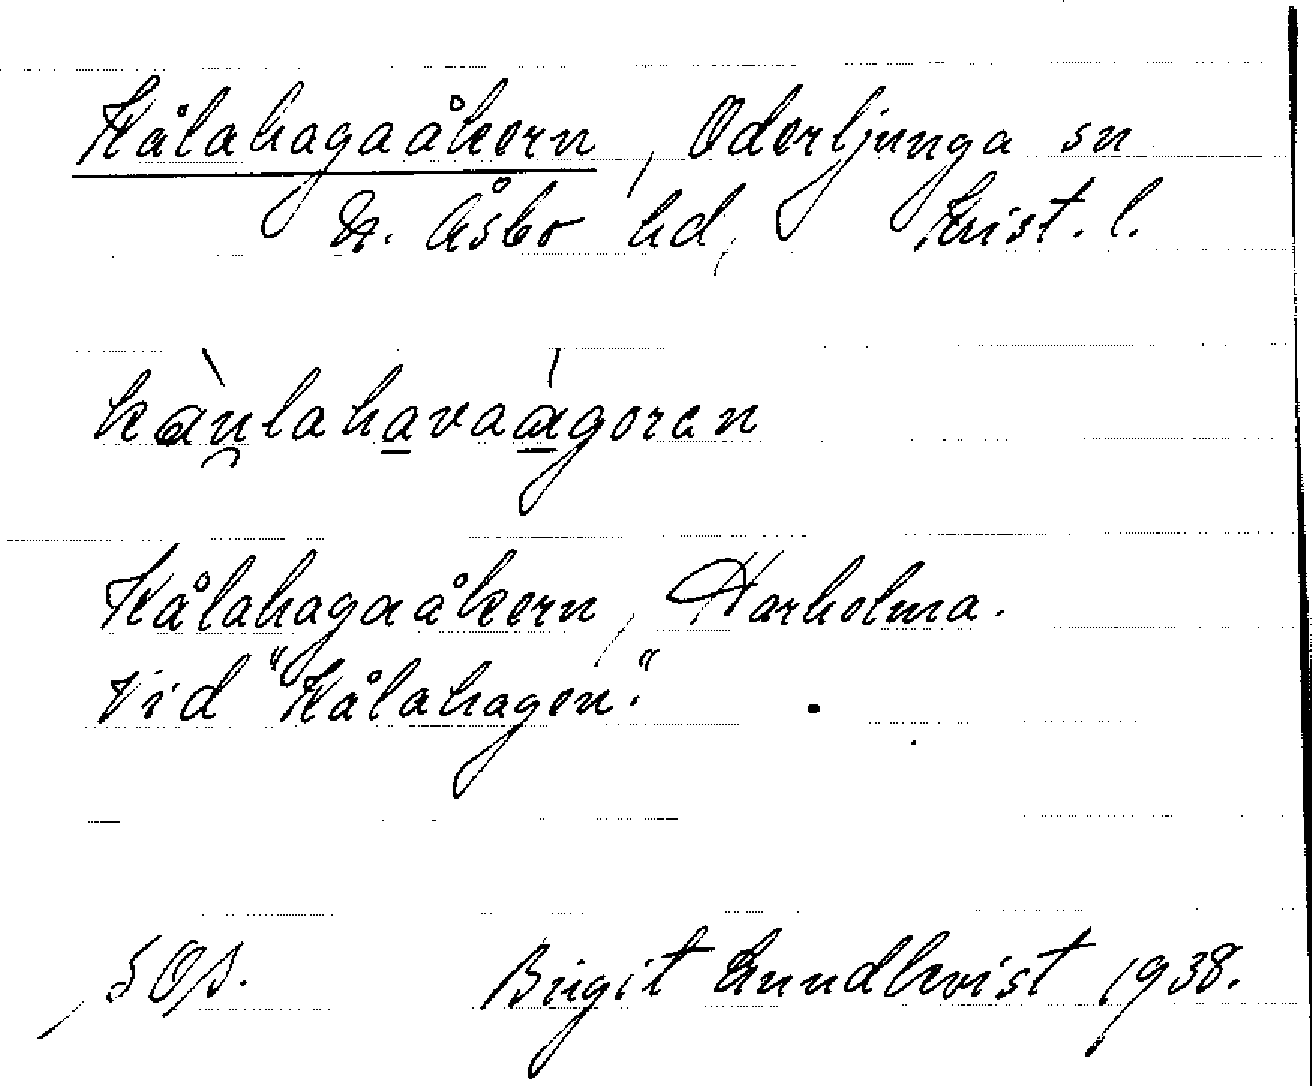 Kålahagaåkern, Oderljunga sn
N. Åsbo hd, Krist. l.
kàu̯lahavaágoren
Kålahagaåkern, Harholma.
Vid "Kålahagen".
SOS. Birgit Lundkvist 1938.